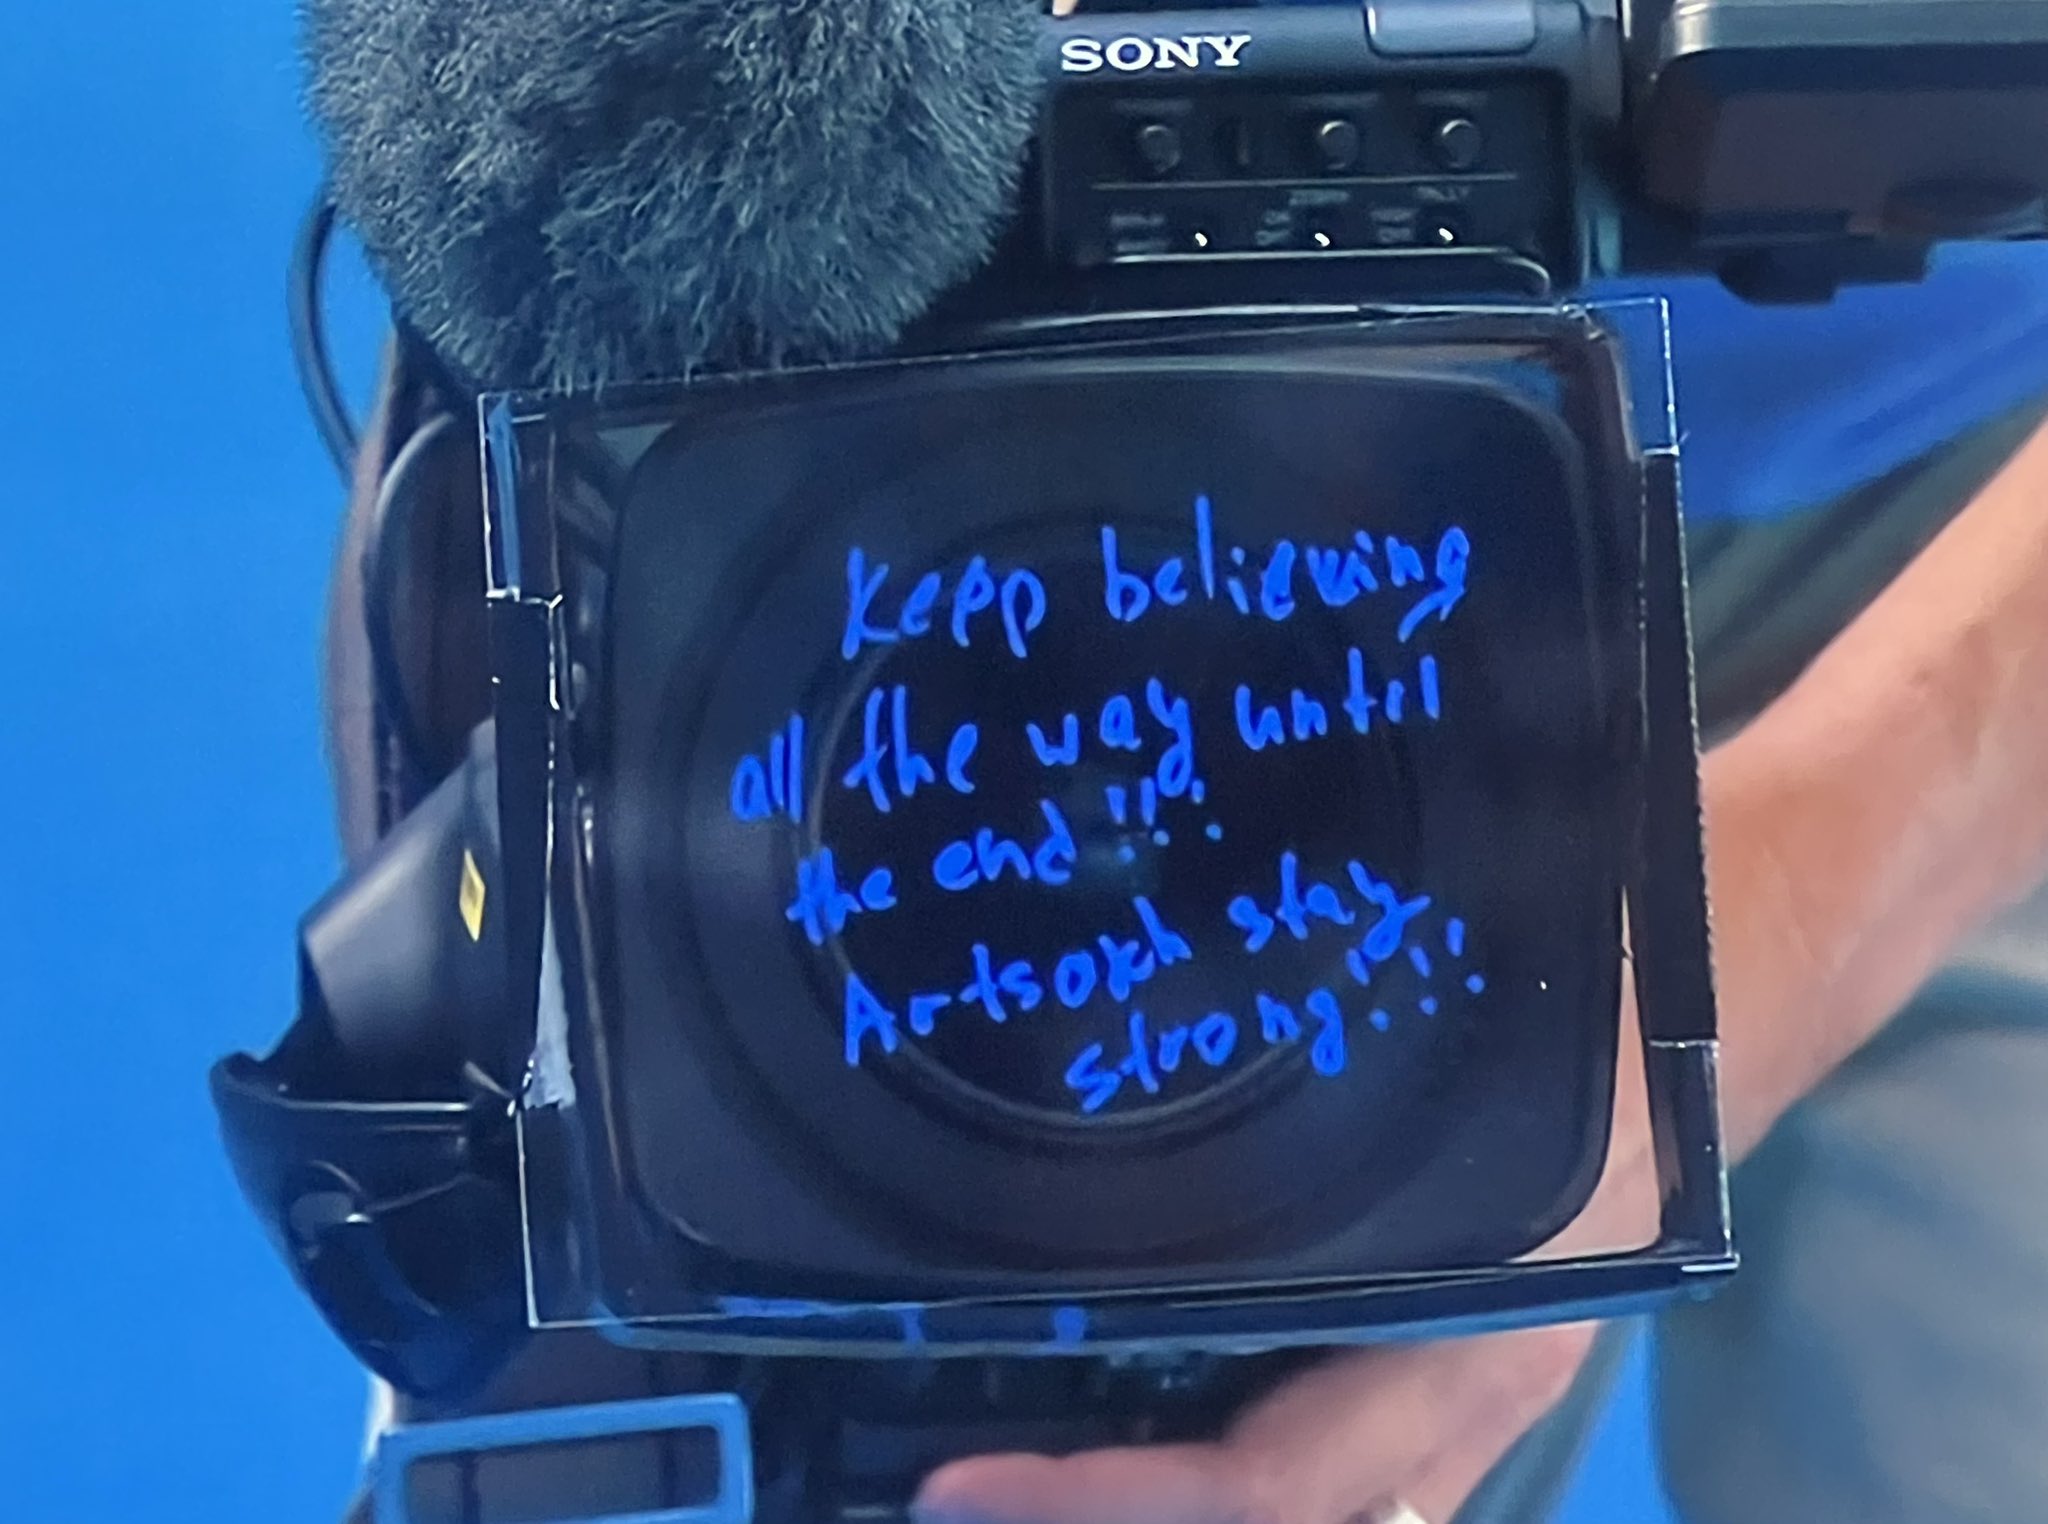 SONY
Keep believing
all the way until
the end!!!
Artsakh stay
strong!!!